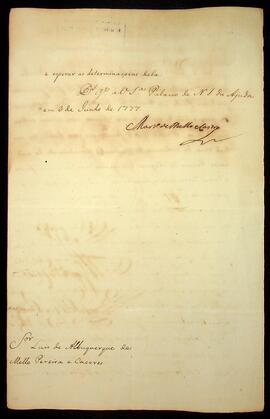 a esperar as determinaçoens della
D.s g.de a V. S.a Palacio de N. S. da Ajuda
em 3 de Junho de 1777
Mart.o de Mello e Castro
S.or Luis de Albuquerque de
Mello Pereira e Caceres